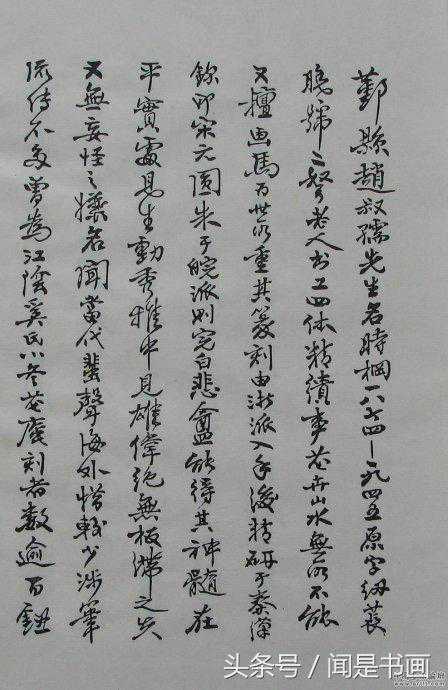 鄞縣趙叔孺先生名時棡一八七四—一九四五原字紉萇
晚號二弩老人書工四体精繢事花卉山水無所不能
又擅画馬为世所重其篆刻由浙派入手後精研于秦漢
鉨印宋元圓朱于皖派则完白悲盦能得其神髓在
平實處見生動秀雅中見雄偉絕無板滯之失
又無妄怪之壞名聞當代蜚聲海外惜較少涉筆
流传不多曾為江陰奚氏小冬花庵刻者數逾百鈕
头条号 / 闻是书画